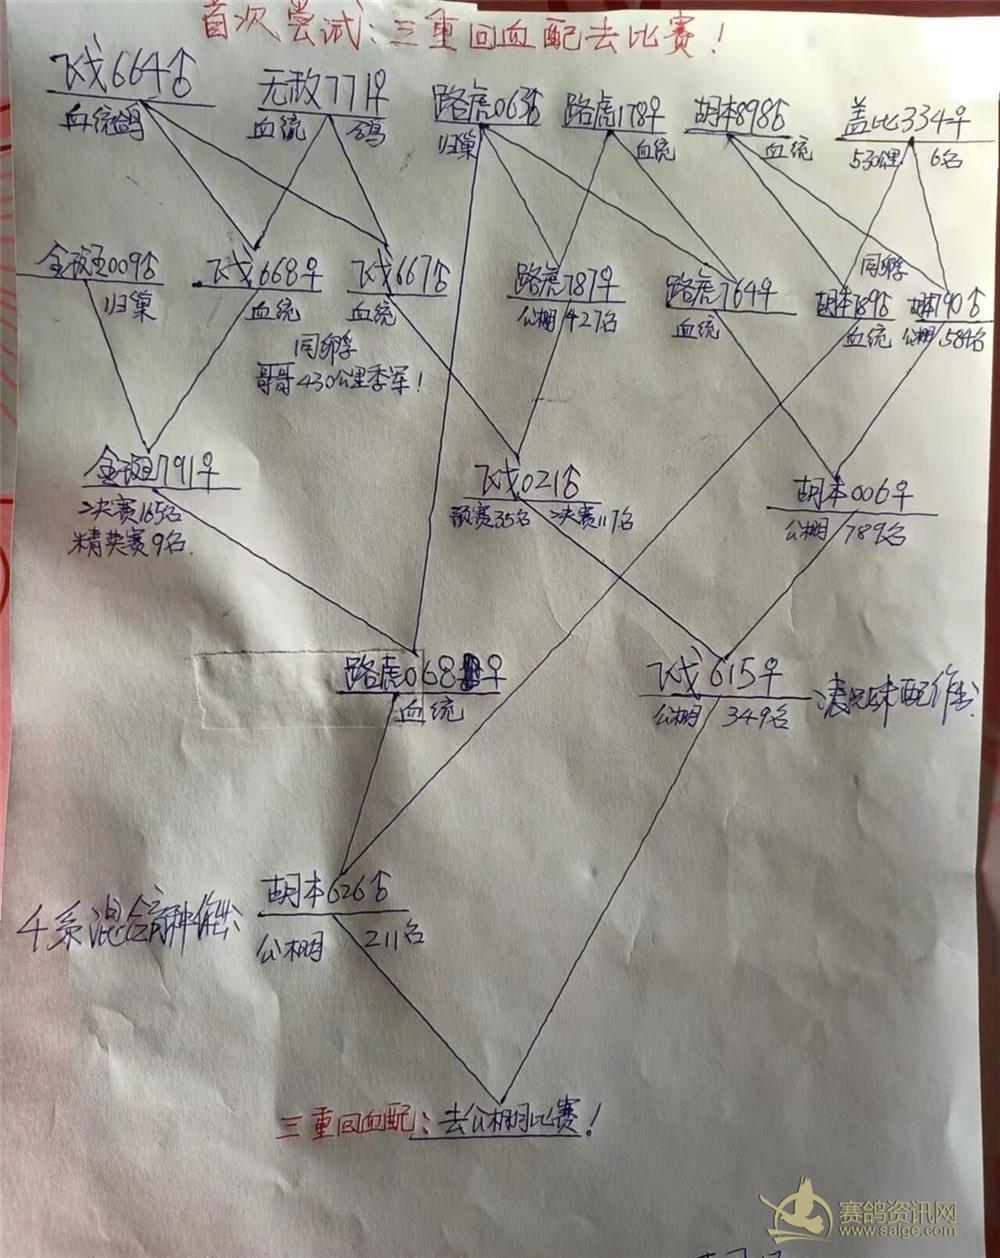 首次尝试:三重回血配去比赛!
飞戈664♂
血统鸽
无敌771♀
血统 鸽
路虎063♂
归巢
路虎178♀
血统
胡本898♂
血统
盖比334♀
530公里 6名
金斑009♂
归巢
飞戈668♀
血统
飞戈667♂
血统
同孵
哥哥430公里季军!
路虎787♀
公棚 427名
路虎764♀
血统
同孵
胡本789♂
血统
胡本790♂
公棚 584名
金斑791♀
决赛165名
精英赛9名.
飞戈021♂
预赛35名 决赛117名
胡本006♀
公棚 789名
路虎068♀
血统
飞戈615♀
公棚 349名
表兄妹配作出
胡本626♂
公棚 211名
4系混合育种作出
三重回血配:去公棚比赛!
赛鸽资讯网
www.saige.com